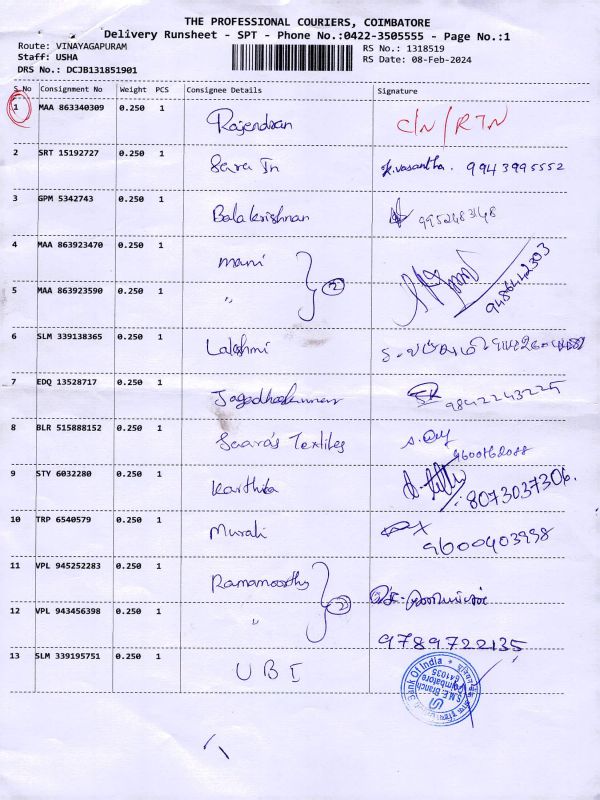 THE PROFESSIONAL COURIERS, COIMBATORE
Delivery Runsheet - SPT - Phone No.:0422-3505555 - Page No.:1
Route: VINAYAGAPURAM
RS No.: 1318519
Staff: USHA
RS Date: 08-Feb-2024
DRS No.: DCJB131851901
S No Consignment No Weight PCS Consignee Details Signature
1 MAA 863340309 0.250 1 Rajendran C/N/RTN
2 SRT 15192727 0.250 1 Sara In K.vasantha. 9943995552
3 GPM 5342743 0.250 1 Balakrishnan 9952483148
4 MAA 863923470 0.250 1 mani
2 9486442303
5 MAA 863923590 0.250 1 "
6 SLM 339138365 0.250 1 Lakshmi
7 EDQ 13528717 0.250 1 Jagadheskumar 9842243225
8 BLR 515888152 0.250 1 Saara's Textiles
9600162088
9 STY 6032280 0.250 1 Karthika 8073037306.
10 TRP 6540579 0.250 1 Murali 9600403998
11 VPL 945252283 0.250 1 Ramamoorthy
2
12 VPL 943456398 0.250 1 "
9789722135
13 SLM 339195751 0.250 1 UBI
Bank Of India
S.M.E. Branch
Coimbatore
641035